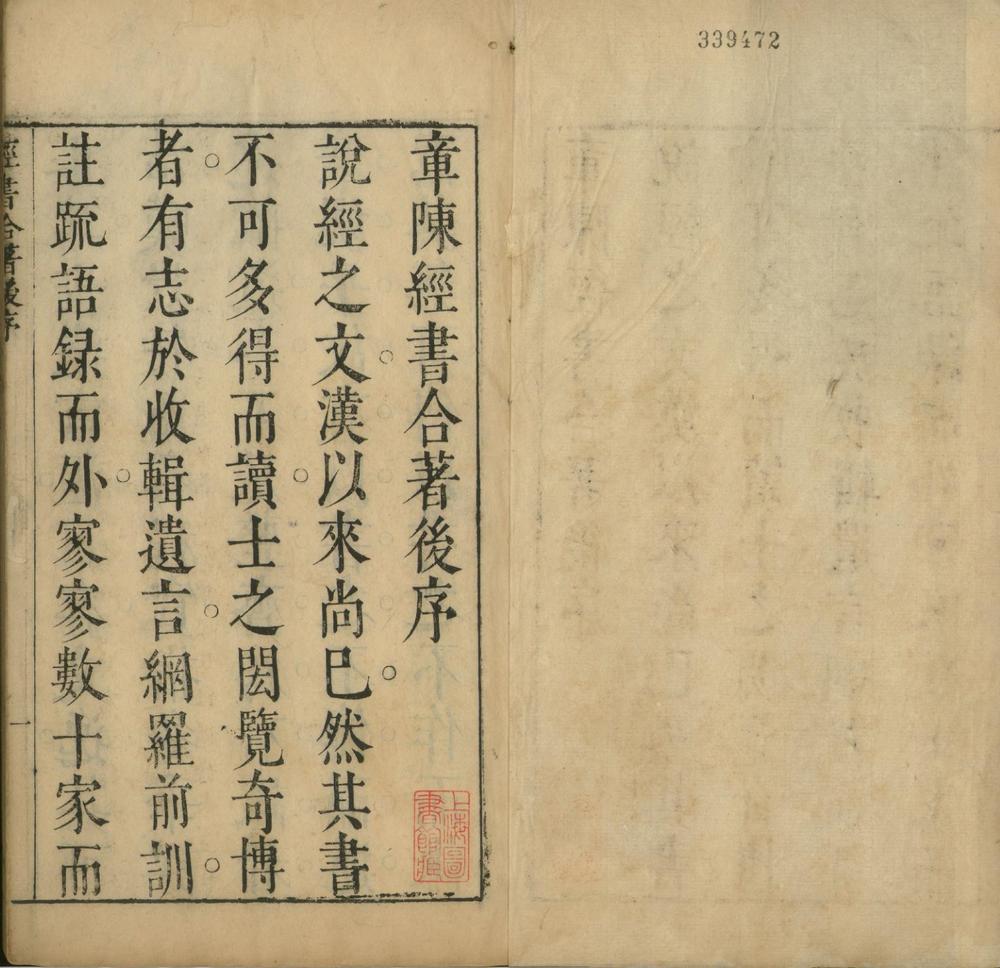 339472
章陳經書合著後序
說經之文。漢以來尚已。然其書
不可多得而讀。士之閎覽奇博
者。有志於收輯遺言。網羅前訓。
註疏語録而外。寥寥數十家而
經書合著後序
一
上海圖
書館藏